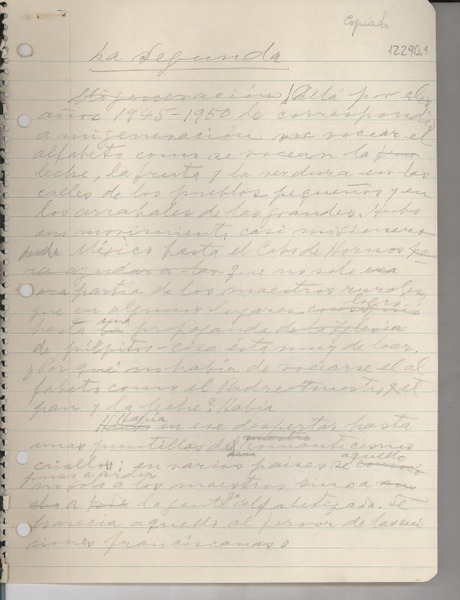 Copiado
12290.1
La Segunda
Mi generación! Allá por los
años 1945-1950 le correspondió
a mi generación vocear el
alfabeto como se vocean la
leche, la fruta y la verdura en las
calles de los pueblos pequeños y en
los arrabales de las grandes. Hubo
un movimiento casi misionero
desde México hasta el Cabo de Hornos
ayudar a los que no solo
partía de los maestros rurales,
que en algunos lugares
hasta una propaganda de la iglesia
de púlpitos - cosa ésta muy de loar.
¿Por qué no había de vocearse el al
fabeto como el Padre Nuestro, el
pan y la leche? Había
Había en ese despertar hasta
unas puntillas de romanticismo
criollo; en varios países se aquello
a los maestros sino a
a la gente alfabetizada. Se
parecía aquello al fervor de las mi
siones franciscanas.